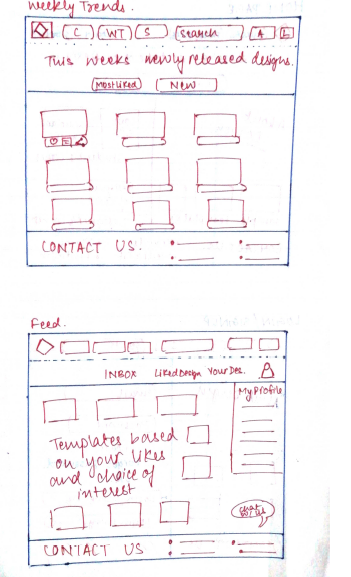 Weekly Trends.
C WT S Search A L
This weeks newly released designs.
Most Liked New
CONTACT US.
Feed.
INBOX Liked Design Your Des.
My Profile
Templates based
on your likes
and choice of
interest
CONTACT US